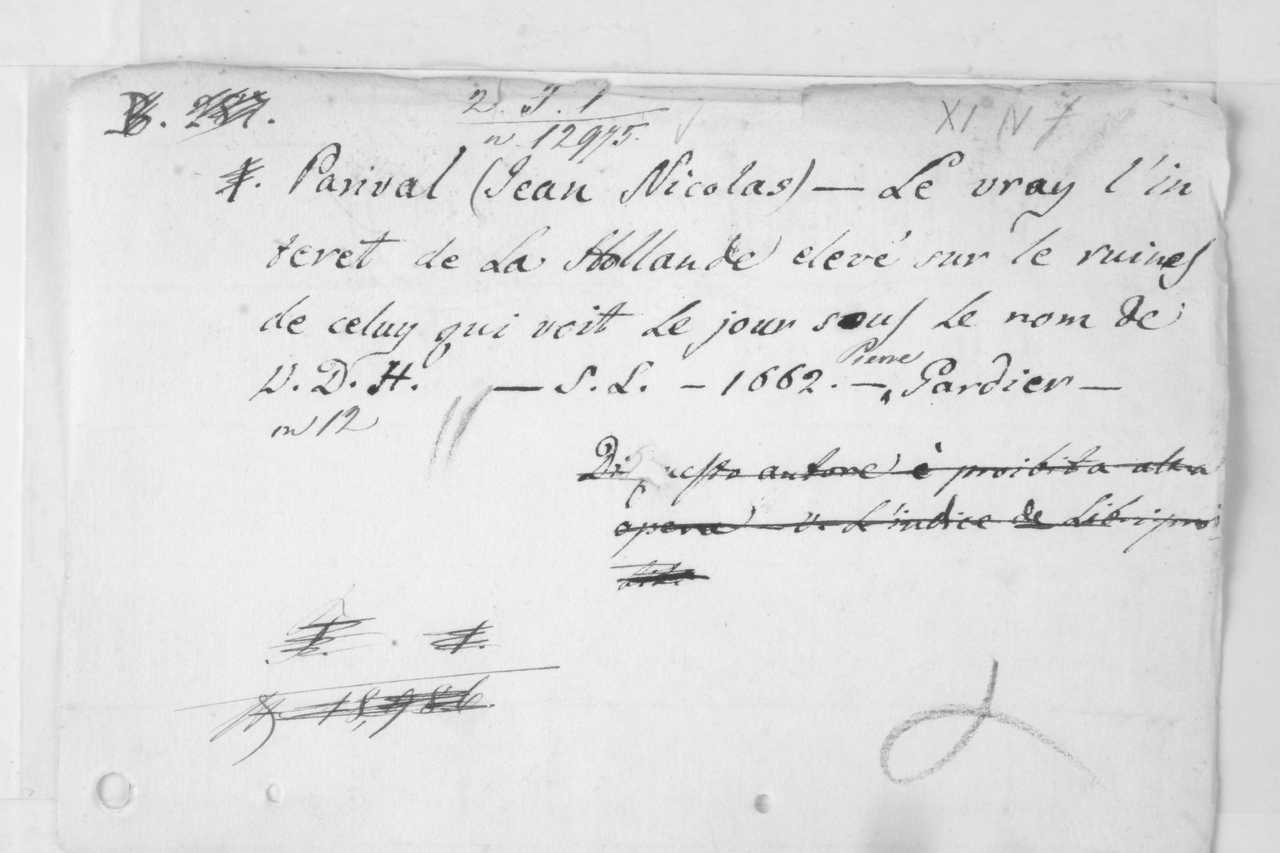 B. 287.
2. J. 1
n. 12975.
XI IV 7
‡. Parival (Jean Nicolas) — Le vray l'in
teret de La Hollande elevé sur le ruines
de celuy qui voit Le jour sous Le nom de
V. D. H. — S. L. — 1662. — Pierre Gardier —
in 12
Di questo autore è proibita altra
opera V. L'indice de Libri proi
biti.
18,986.